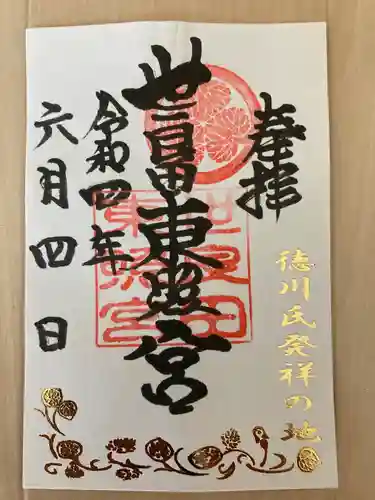 奉拝
徳川氏発祥の地
世良田東照宮
世良田
東照宮
令和四年
六月四日